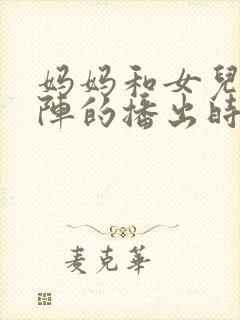 妈妈和女兒
陣的播出時
麦克華